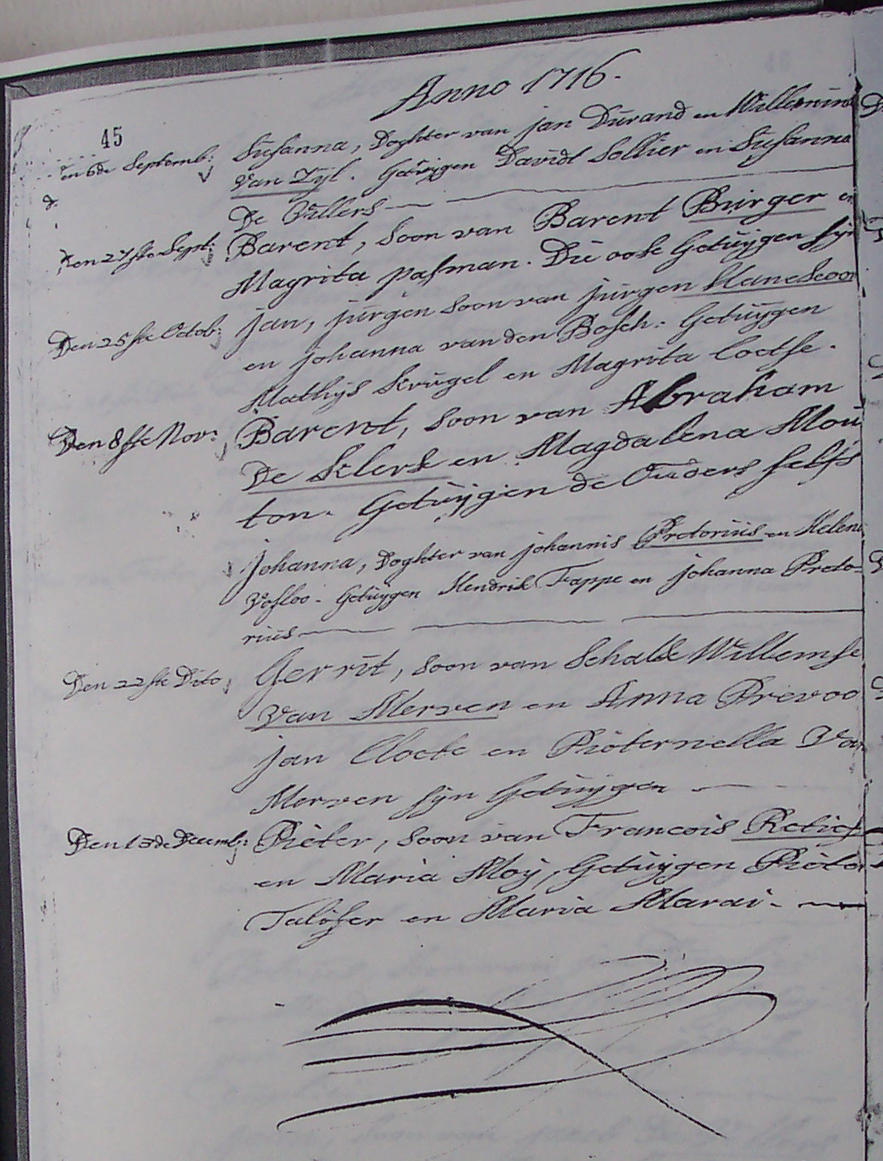 Anno 1716.
45
den 6de Septemb: Susanna, Doghter van Jan Durand en Willemina
Van Zyl. Getuygen Davidt Sollier en Susanna
De Villers
Den 27ste Sept: Barent, Soon van Barent Burger en
Magrita pasman. Die oock Getuygen syn
Den 25ste Octob: Jan, jurgen Soon van jurgen Hanekoo
en johanna van den Bosch. Getuygen
Mathys Krugel en Magrita Coetse.
Den 8ste Nov: Barent, Soon van Abraham
De Klerk en Magdalena Mou
ton. Getuygen de Ouders selfs
Johanna, Doghter van johannis Pretorius en Helena
Vosloo. Getuygen Hendrik Tappe en johanna Preto-
rius
Den 22ste Dito Gerrit, Soon van Schalk Willemse
Van Merven en Anna Prevoo
Jan Cloete en Pieternella Van
Merven syn Getuygen
Den 13de Decemb: Pieter, Soon van Francois Retief
en Maria Moy, Getuygen Pieter
Taljfer en Maria Marai.